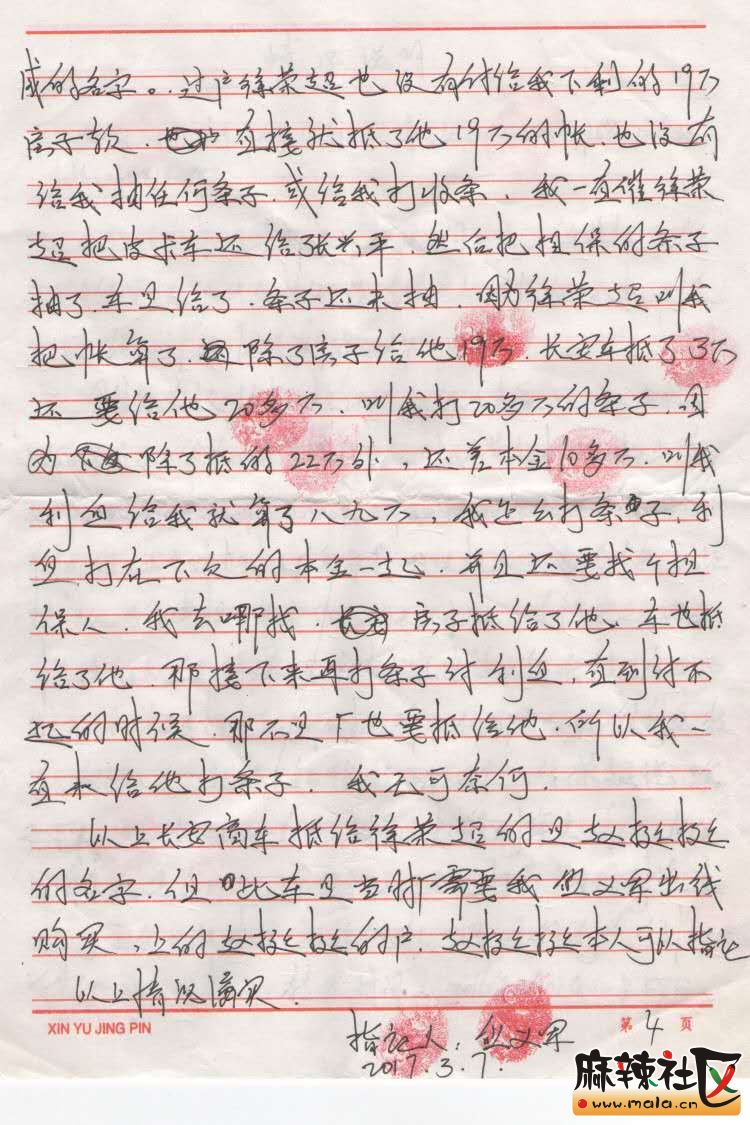 成的名字。过户徐荣超也没有付给我下剩的19万
房子款. 直接就抵了他19万的帐.也没有
给我抽任何条子.或给我打收条. 我一直催徐荣
超把皮卡车还给张兴平.然后把担保的条子
抽了.车且给了.条子还未抽.因为徐荣超叫我
把帐算了.除了房子给他19万.长安车抵了3万
还要给他20多万.叫我打20多万的条子.因
为除了抵的22万外,还差本金10多万.叫我
利息给我就算了八九万,我怎么打条子.利
息打在下欠的本金一起.并且还要找个担
保人.我去哪找. 房子抵给了他.车也抵
给了他.那接下来再打条子付利息,直到付不
起的时候.那不是厂也要抵给他.所以我一
直未给他打条子. 我无可奈何.
以上长安商车抵给徐荣超的是
的名字.但此车是当时厂需要我 出钱
购买,上的 的户. 本人可以指证
以上情况属实.
XIN YU JING PIN
第4页
指证人:
2017.3.7.
麻辣社区
www.mala.cn